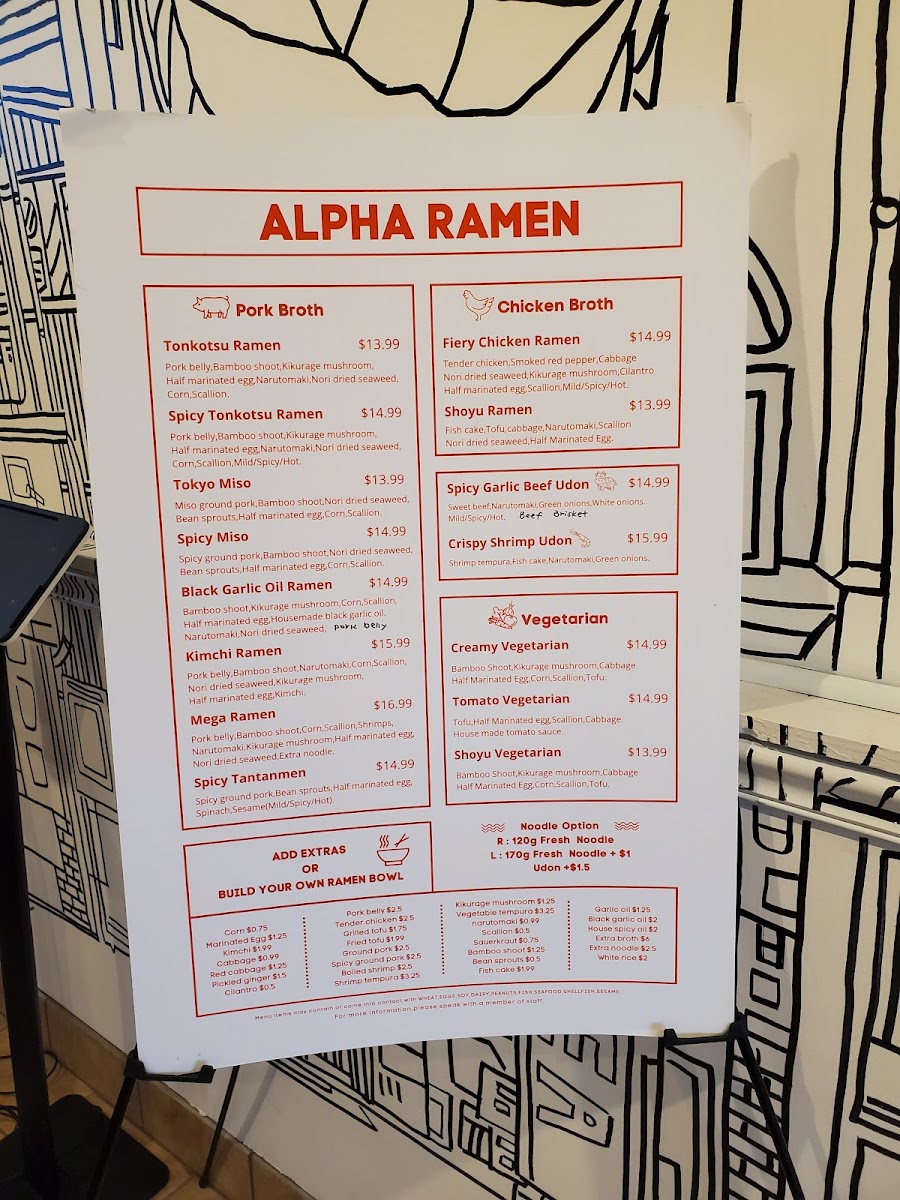 ALPHA RAMEN
Pork Broth
Tonkotsu Ramen $13.99
Pork belly,Bamboo shoot,Kikurage mushroom,
Half marinated egg,Narutomaki,Nori dried seaweed,
Corn,Scallion.
Spicy Tonkotsu Ramen $14.99
Pork belly,Bamboo shoot,Kikurage mushroom,
Half marinated egg,Narutomaki,Nori dried seaweed,
Corn,Scallion,Mild/Spicy/Hot.
Tokyo Miso $13.99
Miso ground pork,Bamboo shoot,Nori dried seaweed,
Bean sprouts,Half marinated egg,Corn,Scallion.
Spicy Miso $14.99
Spicy ground pork,Bamboo shoot,Nori dried seaweed,
Bean sprouts,Half marinated egg,Corn,Scallion.
Black Garlic Oil Ramen $14.99
Bamboo shoot,Kikurage mushroom,Corn,Scallion,
Half marinated egg,Housemade black garlic oil.
Narutomaki,Nori dried seaweed, pork belly
Kimchi Ramen $15.99
Pork belly,Bamboo shoot,Narutomaki,Corn,Scallion,
Nori dried seaweed,Kikurage mushroom,
Half marinated egg,Kimchi.
Mega Ramen $16.99
Pork belly,Bamboo shoot,Corn,Scallion,Shrimps,
Narutomaki,Kikurage mushroom,Half marinated egg,
Nori dried seaweed,Extra noodle.
Spicy Tantanmen $14.99
Spicy ground pork,Bean sprouts,Half marinated egg,
Spinach,Sesame(Mild/Spicy/Hot).
Chicken Broth
Fiery Chicken Ramen $14.99
Tender chicken,Smoked red pepper,Cabbage
Nori dried seaweed,Kikurage mushroom,Cilantro
Half marinated egg,Scallion,Mild/Spicy/Hot.
Shoyu Ramen $13.99
Fish cake,Tofu,cabbage,Narutomaki,Scallion
Nori dried seaweed,Half Marinated Egg.
Spicy Garlic Beef Udon $14.99
Sweet beef,Narutomaki,Green onions,White onions.
Mild/Spicy/Hot. Beef Brisket
Crispy Shrimp Udon $15.99
Shrimp tempura,Fish cake,Narutomaki,Green onions.
Vegetarian
Creamy Vegetarian $14.99
Bamboo Shoot,Kikurage mushroom,Cabbage
Half Marinated Egg,Corn,Scallion,Tofu.
Tomato Vegetarian $14.99
Tofu,Half Marinated egg,Scallion,Cabbage
House made tomato sauce.
Shoyu Vegetarian $13.99
Bamboo Shoot,Kikurage mushroom,Cabbage
Half Marinated Egg,Corn,Scallion,Tofu.
Noodle Option
R : 120g Fresh Noodle
L : 170g Fresh Noodle + $1
Udon +$1.5
ADD EXTRAS
OR
BUILD YOUR OWN RAMEN BOWL
Corn $0.75
Marinated Egg $1.25
Kimchi $1.99
Cabbage $0.99
Red cabbage $1.25
Pickled ginger $1.5
Cilantro $0.5
Pork belly $2.5
Tender chicken $2.5
Grilled tofu $1.75
Fried tofu $1.99
Ground pork $2.5
Spicy ground pork $2.5
Boiled shrimp $2.5
Shrimp tempura $3.25
Kikurage mushroom $1.25
Vegetable tempura $3.25
narutomaki $0.99
Scallion $0.5
Sauerkraut $0.75
Bamboo shoot $1.25
Bean sprouts $0.5
Fish cake $1.99
Garlic oil $1.25
Black garlic oil $2
House spicy oil $2
Extra broth $6
Extra noodle $2.5
White rice $2
Menu items may contain or come into contact with WHEAT,EGGS,SOY,DAIRY,PEANUTS,FISH,SEAFOOD,SHELLFISH,SESAME
For more information,please speak with a member of staff.